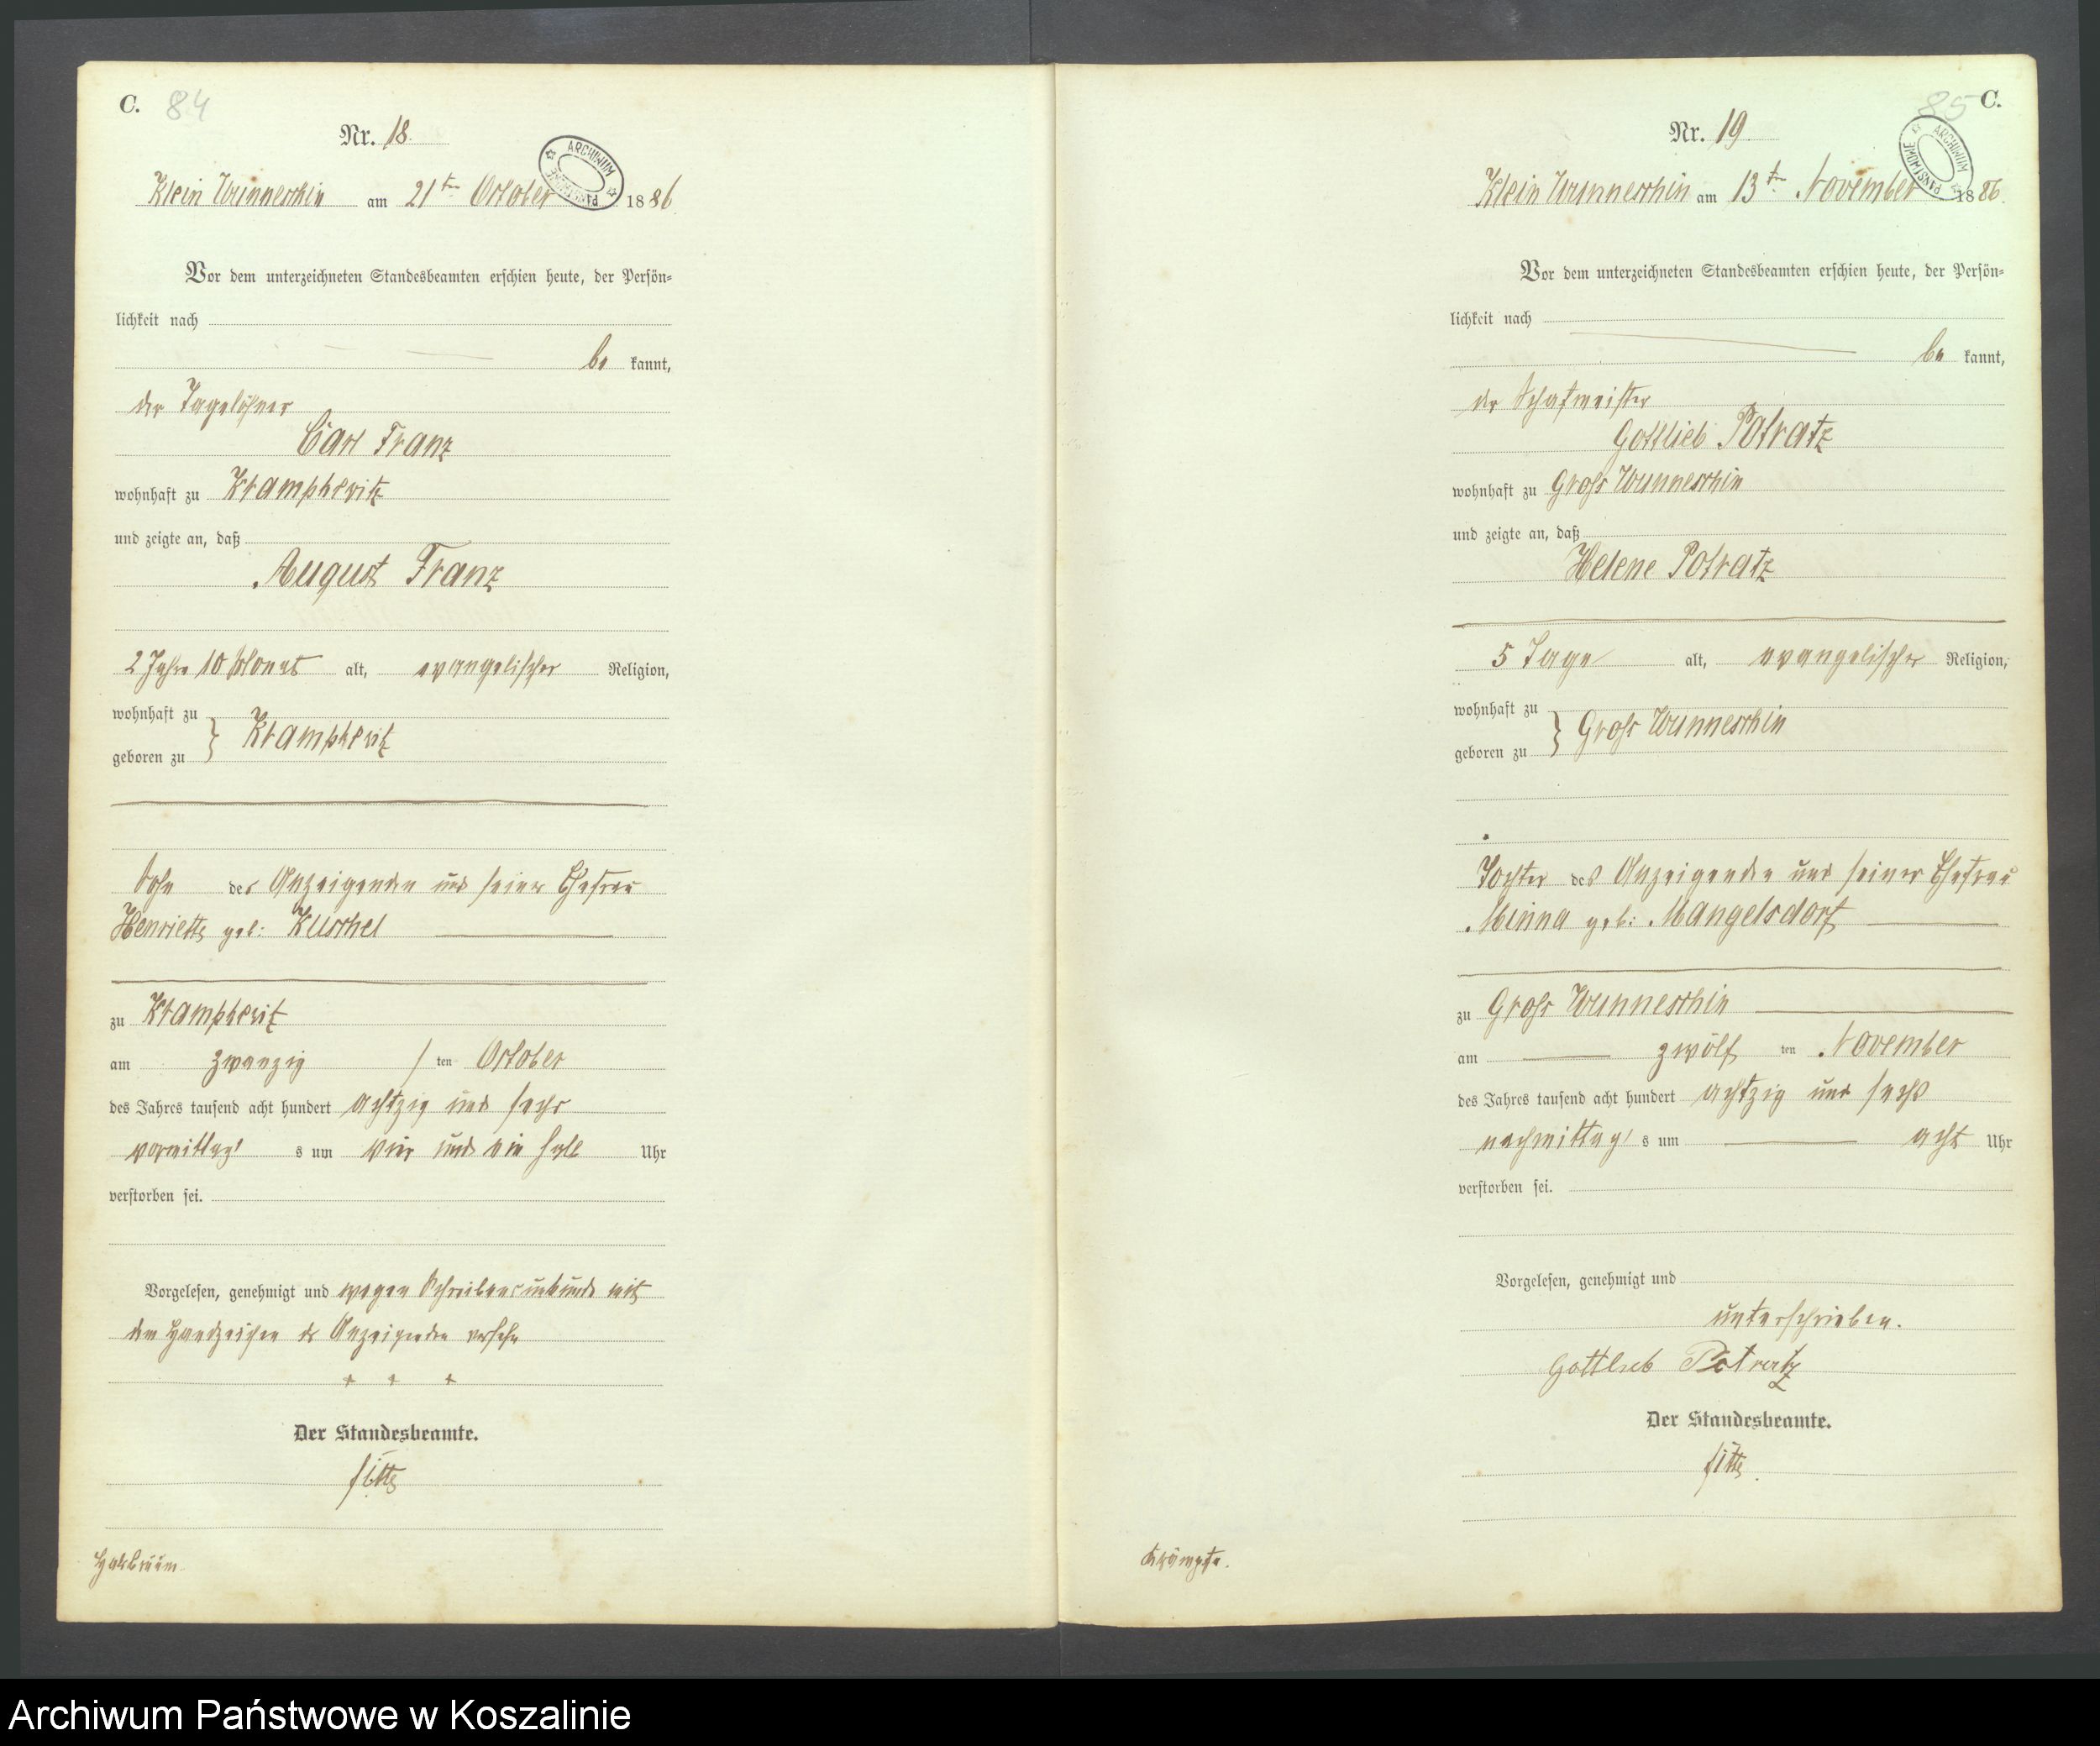 C. 84
Nr. 18.
Klein Wunneschin am 21ten October 1886.
ARCHIWUM PAŃSTWOWE
Vor dem unterzeichneten Standesbeamten erschien heute, der Persön=
lichkeit nach
be kannt,
der Tagelöhner
Carl Franz
wohnhaft zu Krampkewitz
und zeigte an, daß
August Franz
2 Jahre 10 Monat alt, evangelischer Religion,
wohnhaft zu
geboren zu } Krampkewitz
Sohn des Anzeigenden und seiner Ehefrau
Henriette geb: Kuschel
zu Krampkewitz
am zwanzig / ten October
des Jahres tausend acht hundert achtzig und sechs
vormittags um vier und ein halb Uhr
verstorben sei.
Vorgelesen, genehmigt und wegen Schreibensunkunde mit
dem Handzeichen des Anzeigenden versehn
+ + +
Der Standesbeamte.
85 C.
Nr. 19
Klein Wunneschin am 13ten November 1886.
ARCHIWUM PAŃSTWOWE
Vor dem unterzeichneten Standesbeamten erschien heute, der Persön=
lichkeit nach
be kannt,
der Schafmeister
Gottlieb Potratz
wohnhaft zu Groß Wunneschin
und zeigte an, daß
Helene Potratz
5 Tage alt, evangelischer Religion,
wohnhaft zu
geboren zu } Groß Wunneschin
Tochter des Anzeigenden und seiner Ehefrau
Minna geb: Mangelsdorf
zu Groß Wunneschin
am zwölf ten November
des Jahres tausend acht hundert achtzig und sechs
nachmittags um acht Uhr
verstorben sei.
Vorgelesen, genehmigt und
unterschrieben.
Gottlieb Potratz
Der Standesbeamte.
Archiwum Państwowe w Koszalinie